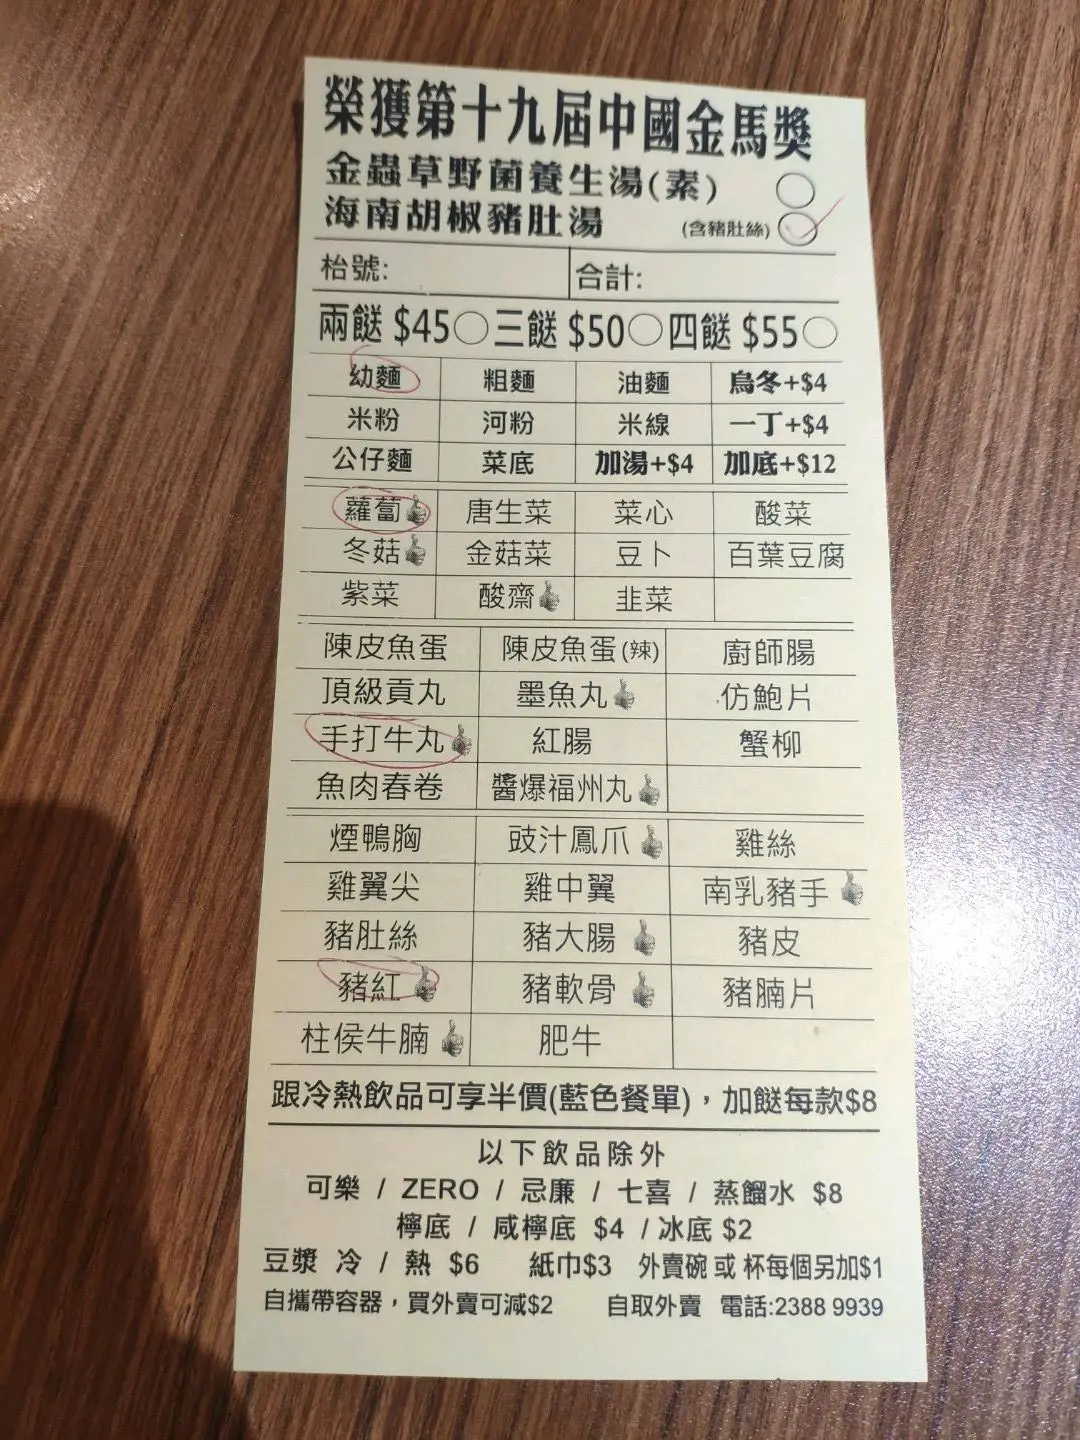 榮獲第十九屆中國金馬獎
金蟲草野菌養生湯(素)
海南胡椒豬肚湯 (含豬肚絲)
枱號: 合計:
兩餸 $45 三餸 $50 四餸 $55
幼麵 粗麵 油麵 烏冬+$4
米粉 河粉 米線 一丁+$4
公仔麵 菜底 加湯+$4 加底+$12
蘿蔔 唐生菜 菜心 酸菜
冬菇 金菇菜 豆卜 百葉豆腐
紫菜 酸齋 韭菜
陳皮魚蛋 陳皮魚蛋(辣) 廚師腸
頂級貢丸 墨魚丸 仿鮑片
手打牛丸 紅腸 蟹柳
魚肉春卷 醬爆福州丸
煙鴨胸 豉汁鳳爪 雞絲
雞翼尖 雞中翼 南乳豬手
豬肚絲 豬大腸 豬皮
豬紅 豬軟骨 豬腩片
柱侯牛腩 肥牛
跟冷熱飲品可享半價(藍色餐單)，加餸每款$8
以下飲品除外
可樂 / ZERO / 忌廉 / 七喜 / 蒸餾水 $8
檸底 / 咸檸底 $4 / 冰底 $2
豆漿 冷 / 熱 $6 紙巾$3 外賣碗或杯每個另加$1
自攜帶容器，買外賣可減$2 自取外賣 電話:2388 9939